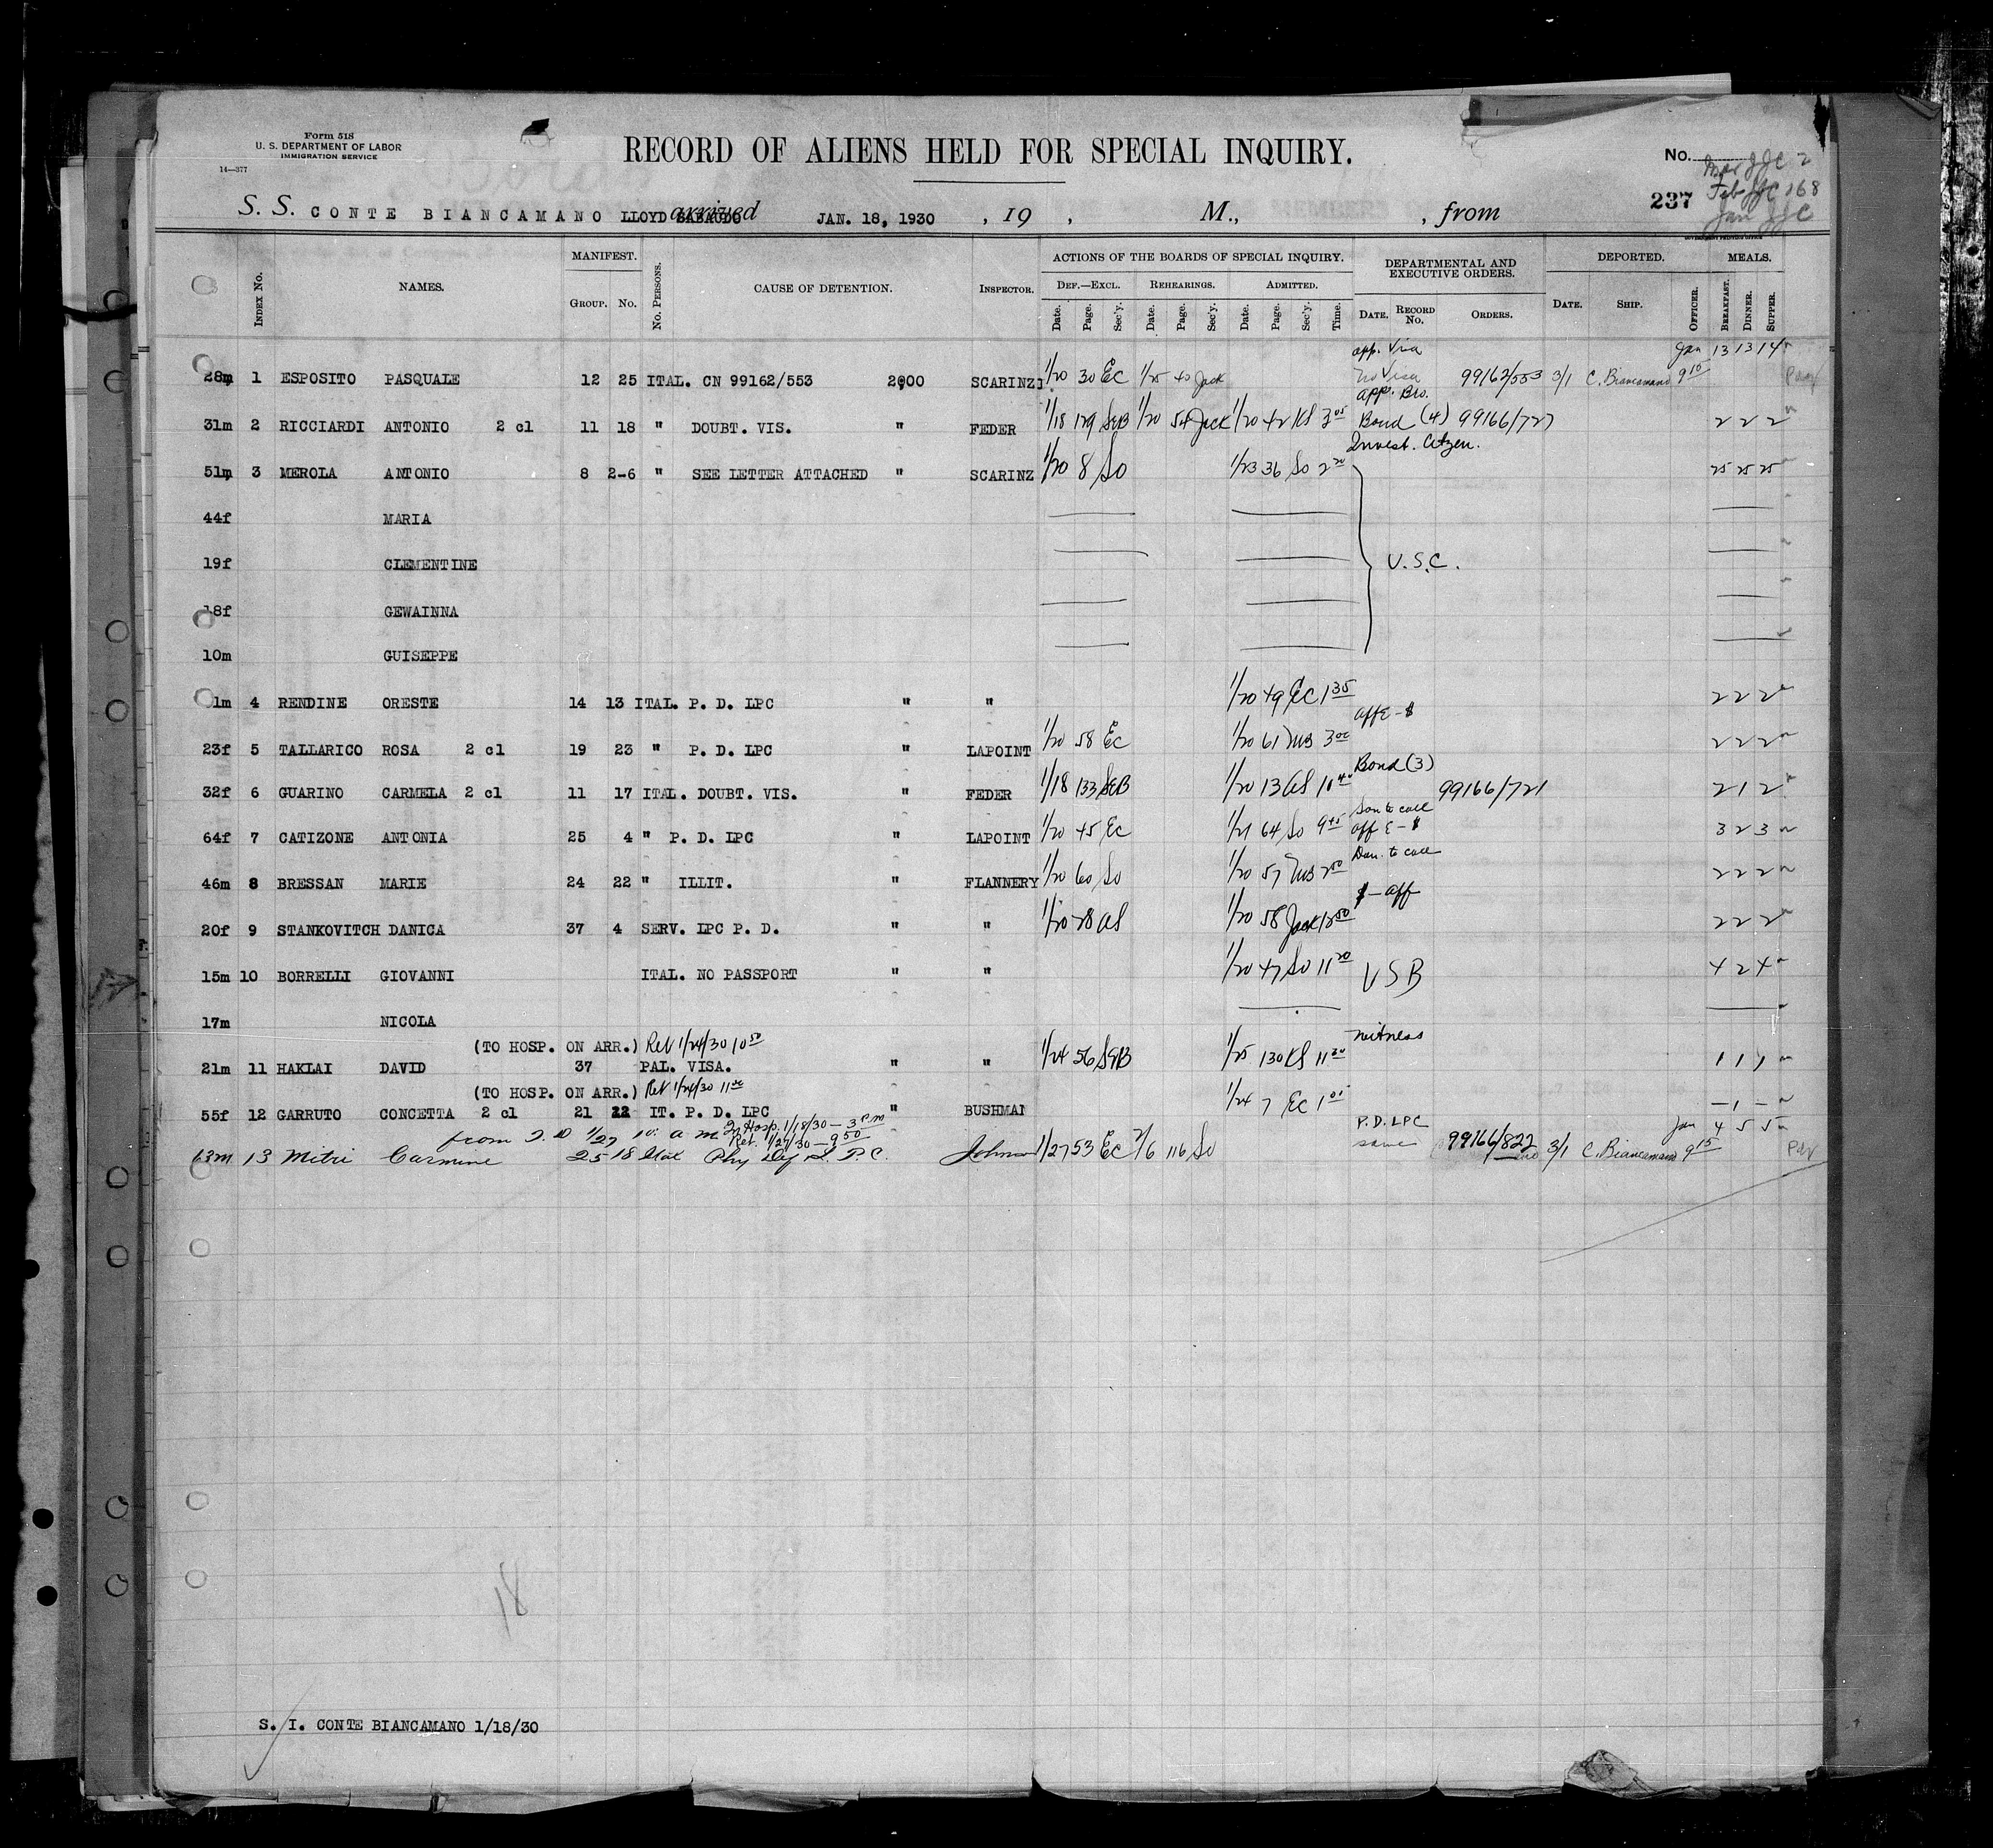 Form 518
U. S. DEPARTMENT OF LABOR
IMMIGRATION SERVICE
14—377
RECORD OF ALIENS HELD FOR SPECIAL INQUIRY.
No.
237
S. S. CONTE BIANCAMANO LLOYD SABAUDO arrived JAN. 18, 1930 , 19 , M., , from
INDEX No. NAMES. MANIFEST. GROUP. No. No. PERSONS. CAUSE OF DETENTION. INSPECTOR. ACTIONS OF THE BOARDS OF SPECIAL INQUIRY. DEPARTMENTAL AND EXECUTIVE ORDERS. DEPORTED. MEALS.
DEF.—EXCL. REHEARINGS. ADMITTED.
Date. Page. Sec'y. Date. Page. Sec'y. Date. Page. Sec'y. Time. DATE. RECORD No. ORDERS. DATE. SHIP. OFFICER. BREAKFAST. DINNER. SUPPER.
app. Visa Jan 13 13 14
28m 1 ESPOSITO PASQUALE 12 25 ITAL. CN 99162/553 2000 SCARINZI 1/20 30 Ec 1/25 40 Jack no Visa 99162/553 3/1 C. Biancamano 9 10
app. Bro.
31m 2 RICCIARDI ANTONIO 2 cl 11 18 " DOUBT. VIS. " FEDER 1/18 129 SEB 1/20 54 Jack 1/20 42 KS 3 05 Bond (4) 99166/727 2 2 2
Invest. Citzen.
51m 3 MEROLA ANTONIO 8 2-6 " SEE LETTER ATTACHED " SCARINZ 1/20 8 So 1/23 36 So 2 20 25 25 25
44f MARIA
19f CLEMENTINE U.S.C.
18f GEWAINNA
10m GUISEPPE
1m 4 RENDINE ORESTE 14 13 ITAL. P. D. LPC " " 1/20 49 Ec 1 35 2 2 2
aff E - $
23f 5 TALLARICO ROSA 2 cl 19 23 " P. D. LPC " LAPOINT 1/20 58 Ec 1/20 61 3 00 2 2 2
Bond (3)
32f 6 GUARINO CARMELA 2 cl 11 17 ITAL. DOUBT. VIS. " FEDER 1/18 133 SEB 1/20 13 11 40 99166/721 2 1 2
Son to call
64f 7 CATIZONE ANTONIA 25 4 " P. D. LPC " LAPOINT 1/20 45 Ec 1/21 64 So 9 45 aff E - $ 3 2 3
Dau. to call
46m 8 BRESSAN MARIE 24 22 " ILLIT. " FLANNERY 1/20 60 So 1/20 57 2 50 2 2 2
$ - aff
20f 9 STANKOVITCH DANICA 37 4 SERV. LPC P. D. " " 1/20 28 1/20 58 Jack 2 2 2
15m 10 BORRELLI GIOVANNI ITAL. NO PASSPORT " " 1/20 47 So 11 20 USB 4 2 4
17m NICOLA
(TO HOSP. ON ARR.) Ret 1/24/30 10 50 witness
21m 11 HAKLAI DAVID 37 PAL. VISA. " " 1/24 56 SEB 1/25 130 KS 11 30 1 1 1
(TO HOSP. ON ARR.) Ret 1/24/30 11 00
55f 12 GARRUTO CONCETTA 2 cl 21 22 IT. P. D. LPC " BUSHMAN 1/24 7 Ec 1 05 – 1 –
In Hosp. 1/18/30 – 3 PM P.D. LPC Jan 4 5 5
from T. D 1/27 10: a m Ret. 1/27/30 – 9 50
13m 13 Mitri Carmine 25 18 Ital Phy Def L. P. C. Johnson 1/27 53 Ec 2/6 116 So same 99166/822 3/1 C. Biancamano 9 15
18
S. I. CONTE BIANCAMANO 1/18/30